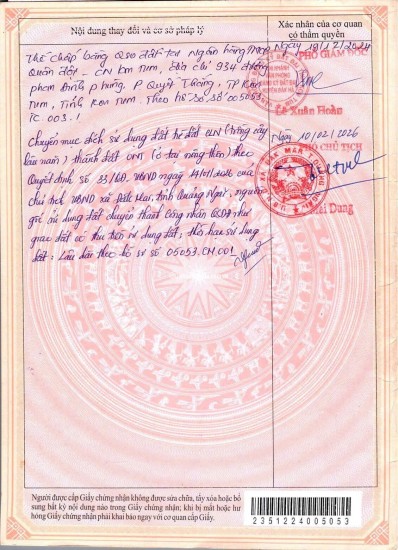 Nội dung thay đổi và cơ sở pháp lý
Xác nhận của cơ quan
có thẩm quyền
Thế chấp bằng QSD đất tại Ngân hàng TMCP
Quân đội - CN Kon Tum, Địa chỉ 934 đường
Phan Đình Phùng, P Quyết Thắng, TP Kon
Tum, Tỉnh Kon Tum. Theo hồ sơ số 005053.
TC 003.
Ngày 19/12/2024
PHÓ GIÁM ĐỐC
Lê Xuân Hoàn
Chuyển mục đích sử dụng đất từ đất CLN (trồng cây
lâu năm) thành đất ONT (ở tại nông thôn) theo
Quyết định số 33/QĐ-UBND ngày 19/01/2026 của
chủ tịch UBND xã Đăk Mar, tỉnh Quảng Ngãi, nguồn
gốc sử dụng đất chuyển thành công nhận QSDĐ như
giao đất có thu tiền sử dụng đất; thời hạn sử dụng
đất: Lâu dài theo hồ sơ số 05053.CM.001
Ngày 10/02/2026
PHÓ CHỦ TỊCH
Mai Dung
Người được cấp Giấy chứng nhận không được sửa chữa, tẩy xóa hoặc bổ
sung bất kỳ nội dung nào trong Giấy chứng nhận; khi bị mất hoặc hư
hỏng Giấy chứng nhận phải khai báo ngay với cơ quan cấp Giấy.
2351224005053